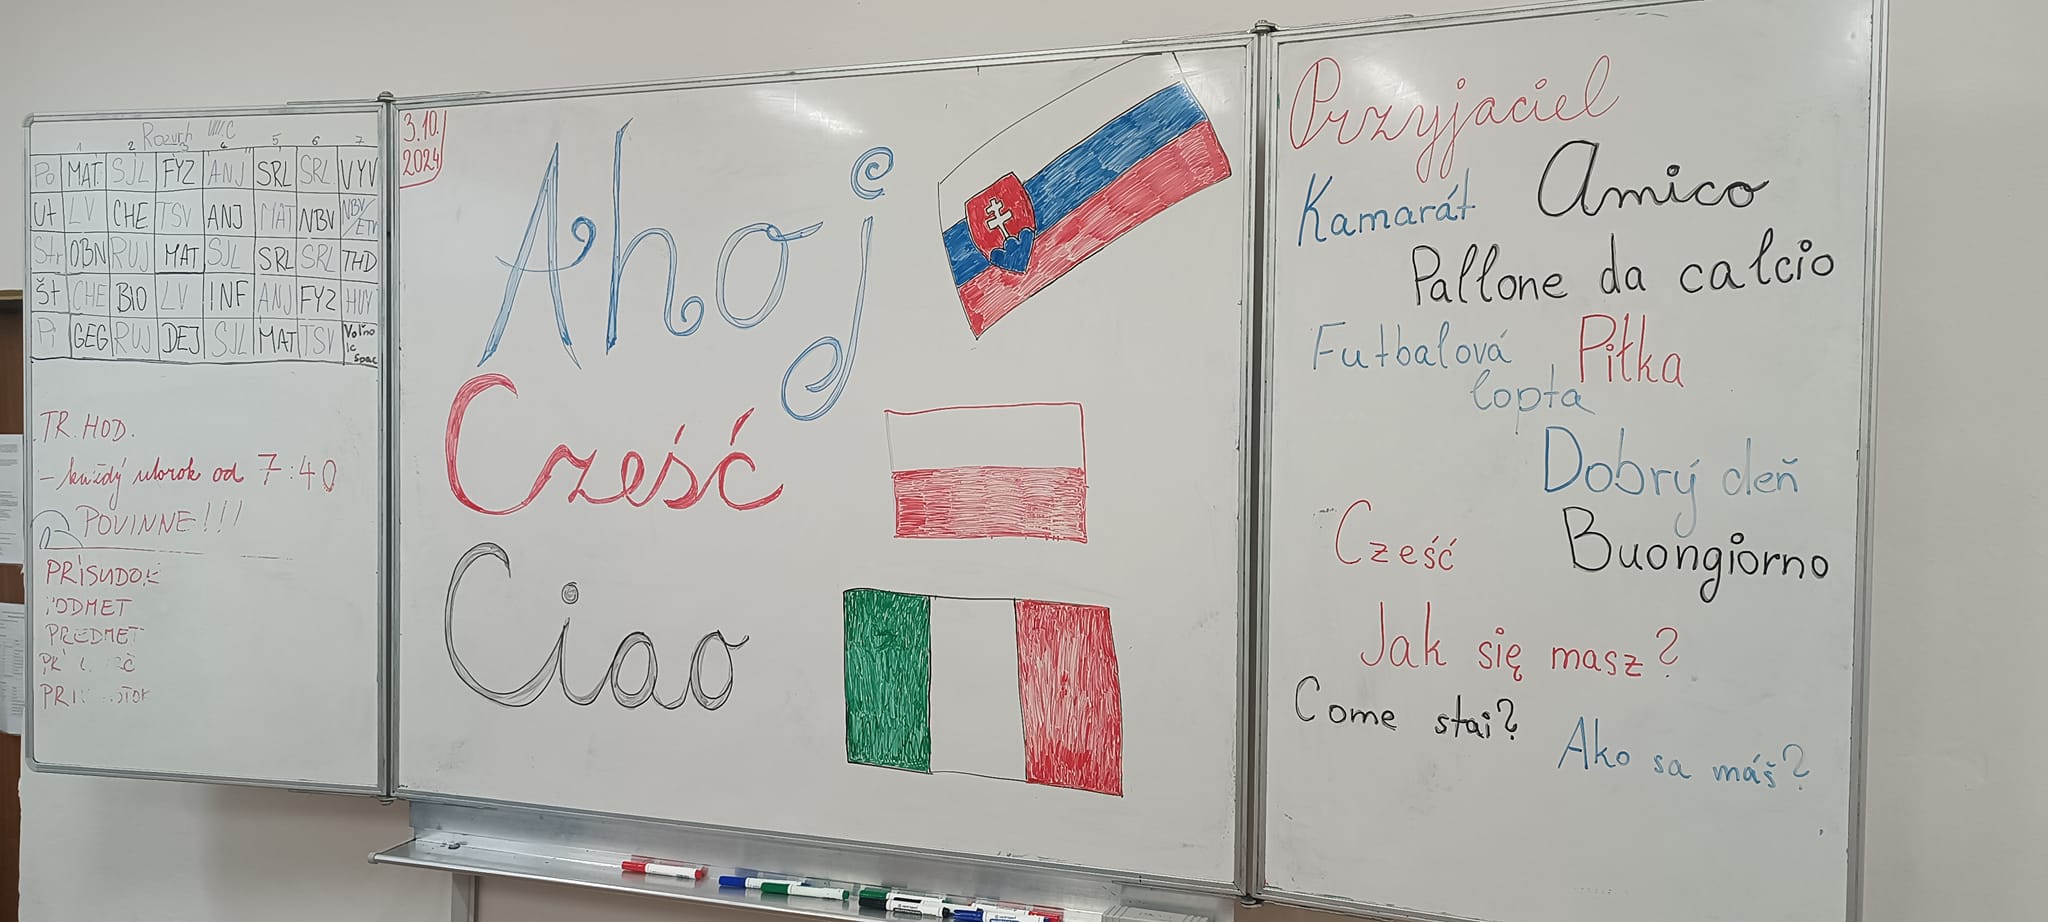 Rozvrh VIII.C
1 2 4 5 6 7
Po MAT SJL FYZ ANJ SRL SRL VYV
Ut LV CHE TSV ANJ MAT NBV NBV/ETV
Str OBN RUJ MAT SJL SRL SRL THD
Št CHE BIO LV INF ANJ FYZ HUV
Pi GEG RUJ DEJ SJL MAT TSV Voľno
TR. HOD.
- každý utorok od 7:40
POVINNE!!!
PRÍSUDOK
PODMET
PREDMET
3.10.
2024
Ahoj
Cześć
Ciao
Przyjaciel
Kamarát Amico
Pallone da calcio
Futbalová Piłka
lopta
Dobrý deň
Cześć Buongiorno
Jak się masz?
Come stai?
Ako sa máš?